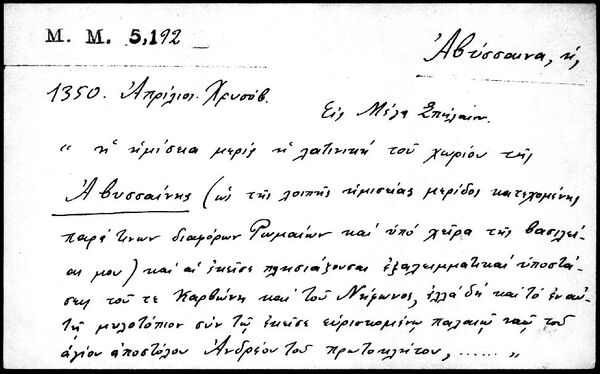 M. M. 5,192
Ἀβύσσαινα, ἡ,
1350. Ἀπρίλιος. Χρυσόβ.
Εἰς Μέγα Σπήλαιον.
" ἡ ἡμίσεια μερὶς ἡ λατινικὴ τοῦ χωρίου τῆς
Ἀβυσσαίνης (ὡς τῆς λοιπῆς ἡμισείας μερίδος κατεχομένης
παρά τινων διαφόρων Ῥωμαίων καὶ ὑπὸ χεῖρα τῆς βασιλεί-
ας μου) καὶ αἱ ἐκεῖσε πλησιάζουσαι ἐξαλειμματικαὶ ὑποστά-
σεις τοῦ τε Καρβώνη καὶ τοῦ Νήφωνος, ἀλλὰ δὴ καὶ τὸ ἐν αὐ-
τῇ μυλοτόπιον σὺν τῷ ἐκεῖσε εὑρισκομένῳ παλαιῷ ναῷ τοῦ
ἁγίου ἀποστόλου Ἀνδρέου τοῦ πρωτοκλήτου, ...... "